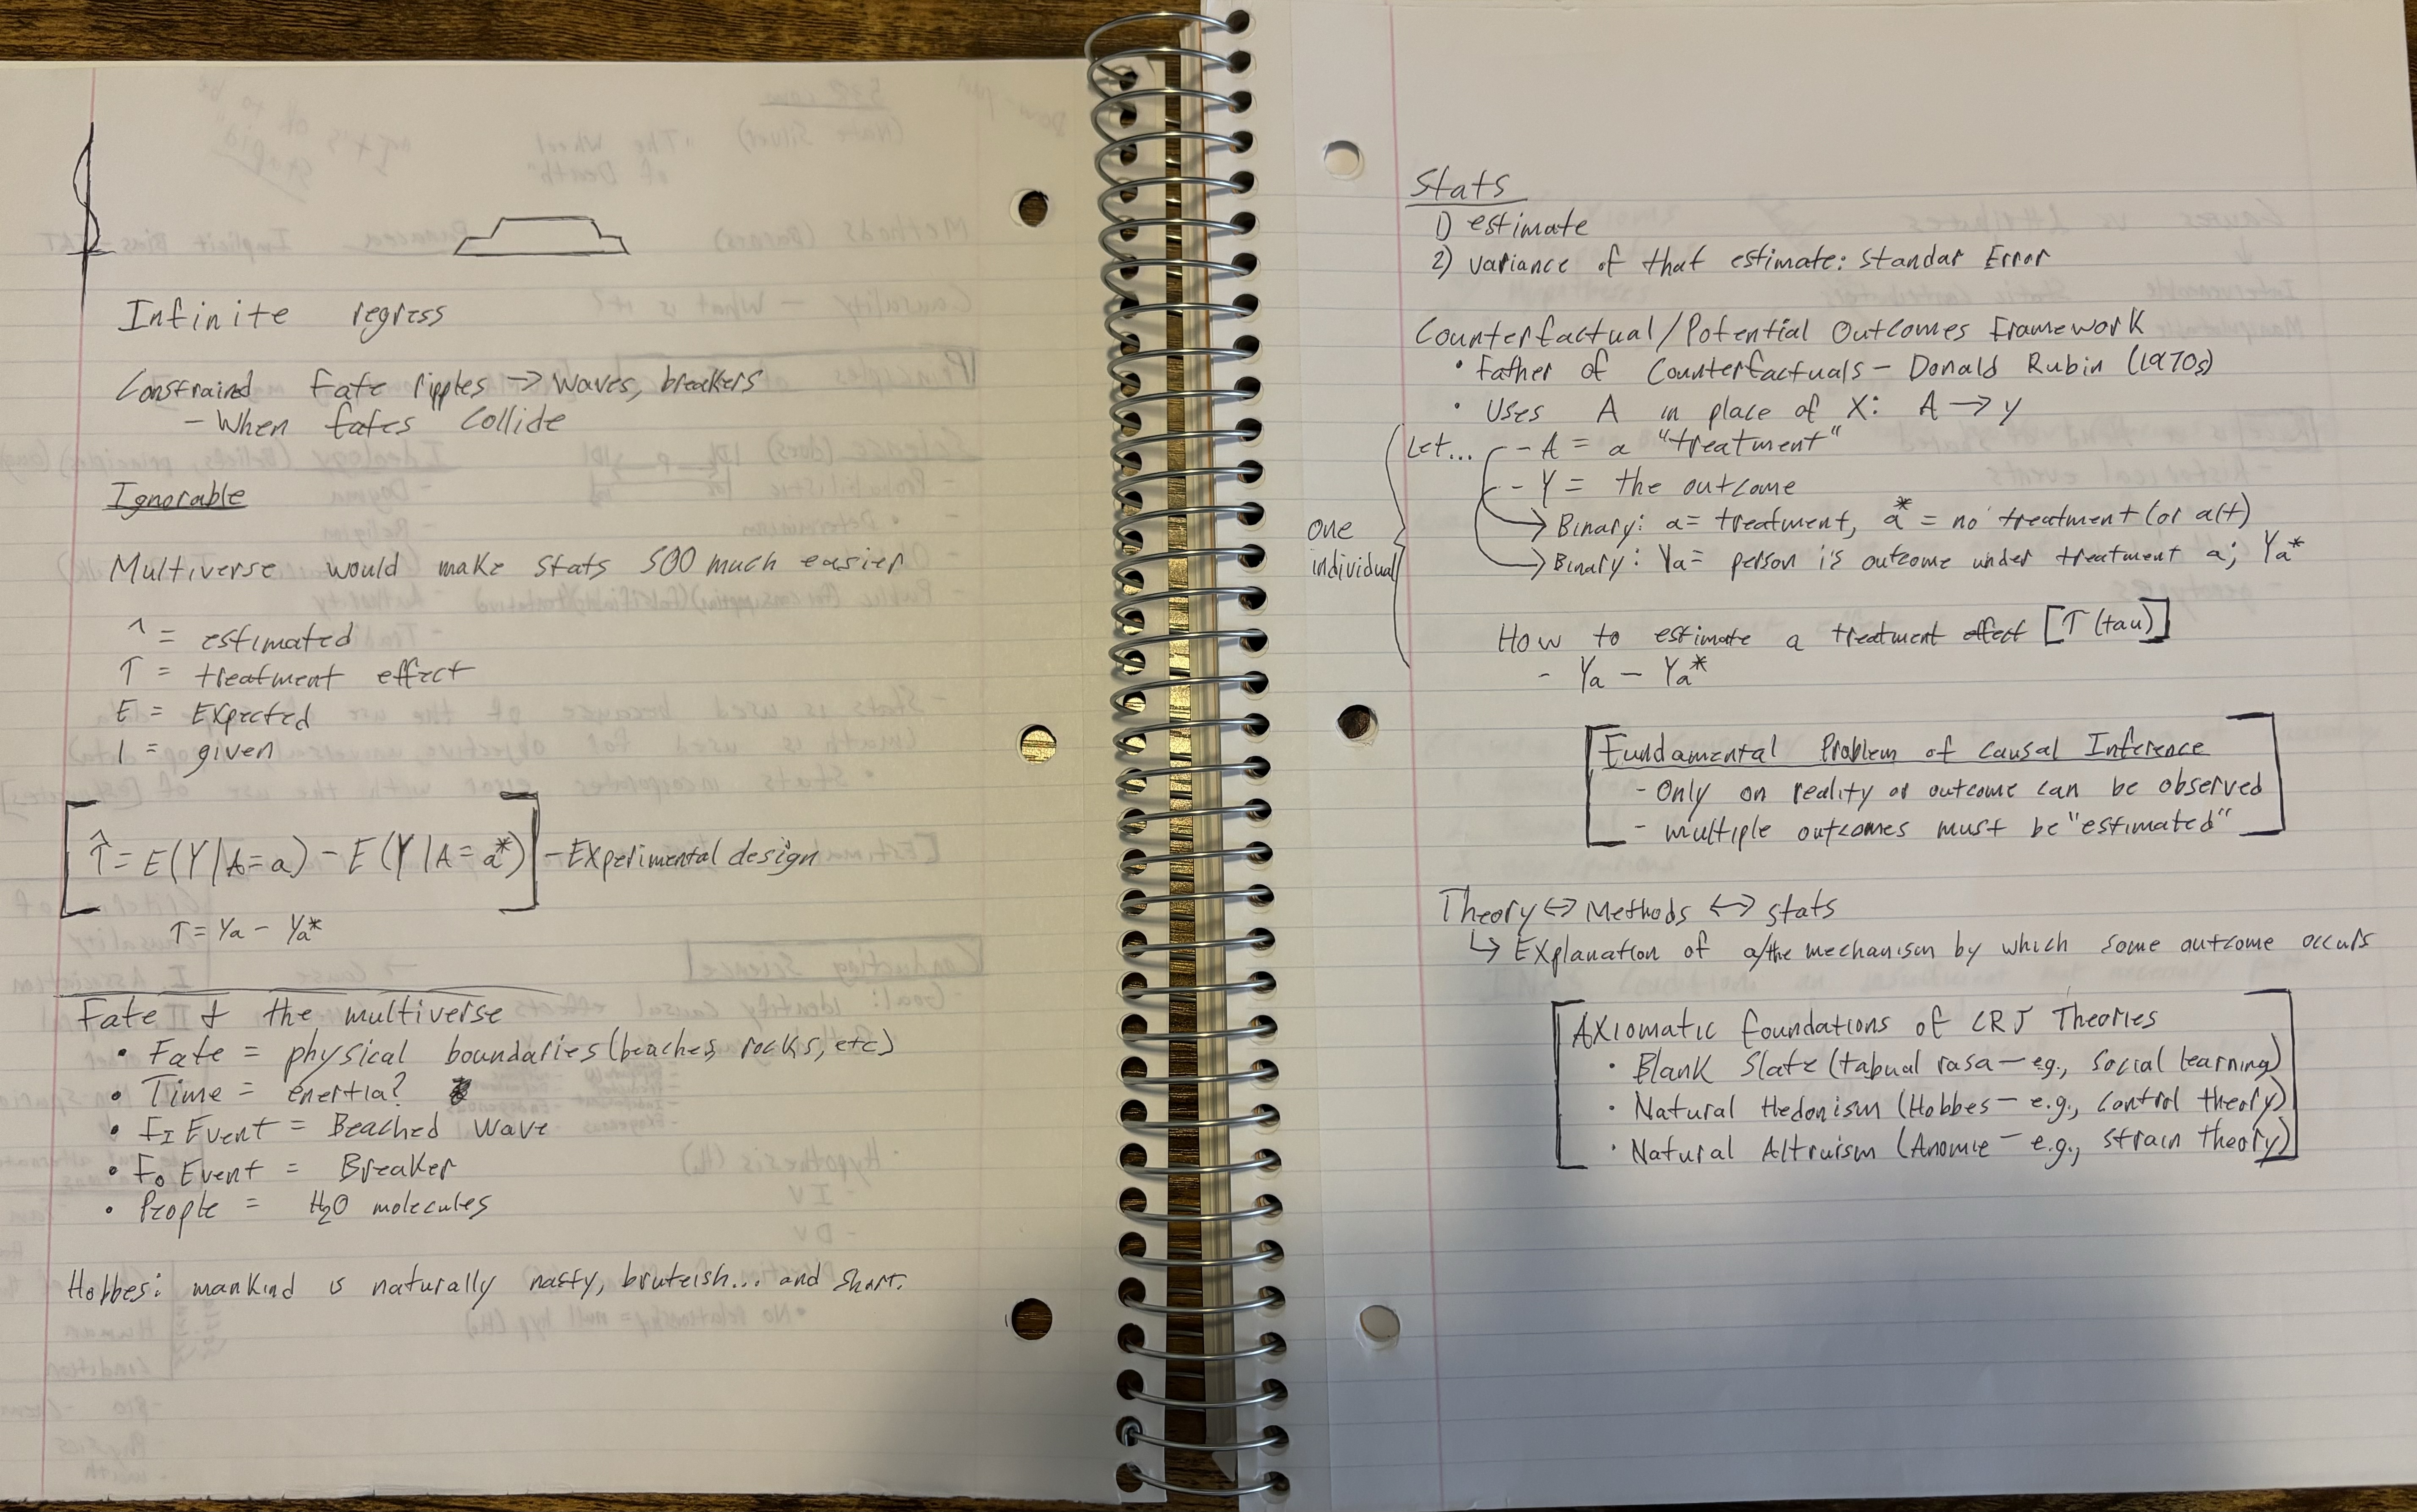 Infinite regress
Constrained Fate ripples → waves, breakers
- When fates collide
Ignorable
Multiverse would make stats SOO much easier
^ = estimated
T = treatment effect
E = Expected
| = given
T̂ = E(Y|A=a) - E(Y|A=a*) - Experimental design
T = Ya - Ya*
Fate & the multiverse
• Fate = physical boundaries (beaches, rocks, etc)
• Time = enertia?
• FI Event = Beached wave
• Fo Event = Breaker
• People = H2O molecules
Hobbes: mankind is naturally nasty, bruteish... and short.
Stats
1) estimate
2) variance of that estimate: Standar Error
Counterfactual/Potential Outcomes Framework
• Father of Counterfactuals - Donald Rubin (1970s)
• Uses A in place of X: A → y
Let... - A = a "treatment"
- Y = the outcome
→ Binary: a = treatment, a* = no treatment (or alt)
→ Binary: Ya = person i's outcome under treatment a; Ya*
one
individual
How to estimate a treatment effect [T (tau)]
- Ya - Ya*
Fundamental Problem of Causal Inference
- Only on reality or outcome can be observed
- multiple outcomes must be "estimated"
Theory ↔ Methods ↔ stats
↳ Explanation of a/the mechanism by which some outcome occurs
Axiomatic foundations of CRJ Theories
• Blank Slate (tabual rasa - e.g., social learning)
• Natural Hedonism (Hobbes - e.g., control theory)
• Natural Altruism (Anomie - e.g., strain theory)